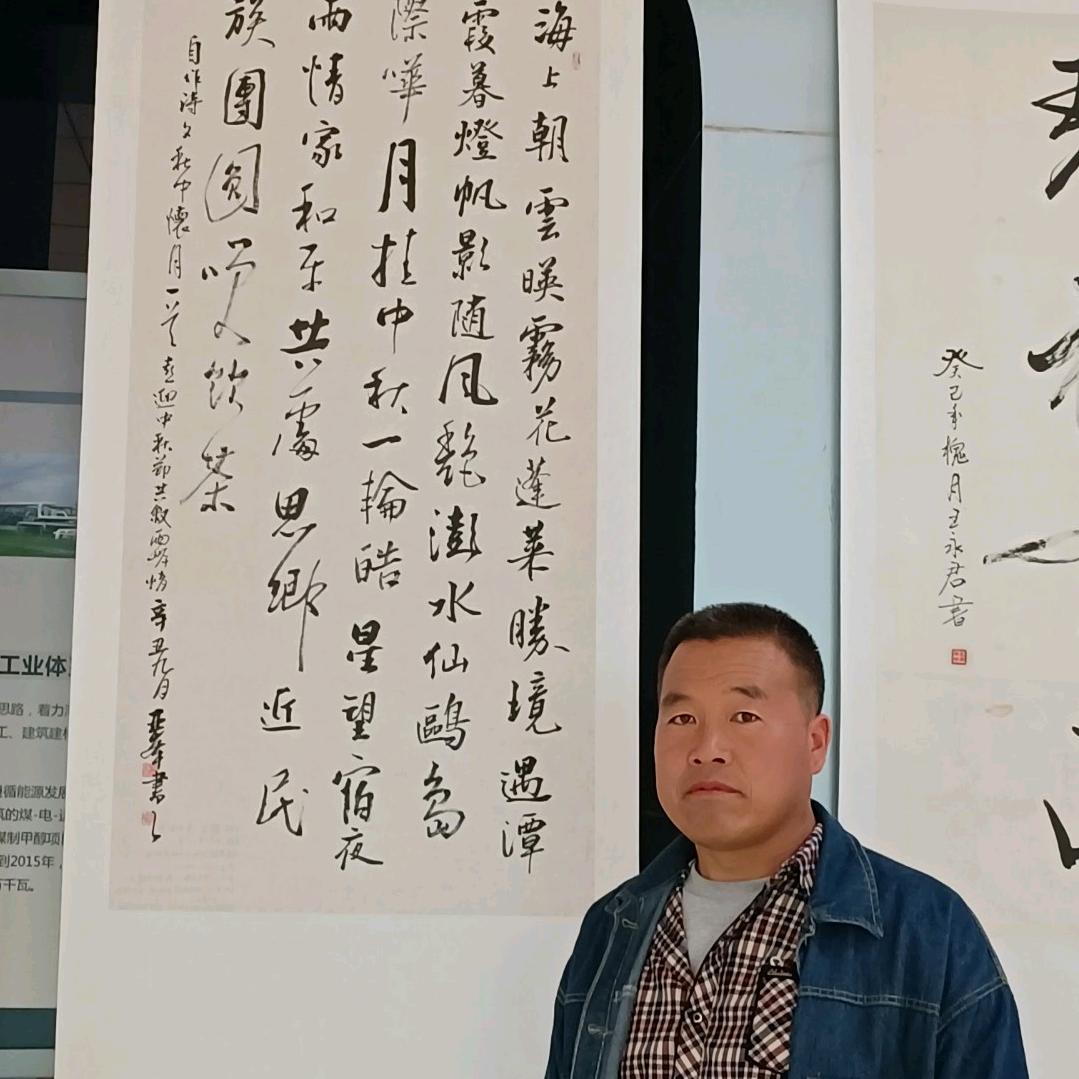 海上朝雲暎霧花蓬萊勝境遇潭
霞暮燈帆影随风艷澎水仙鷗島
際嘩月挂中秋一輪皓星望宿夜
兩情家和平共處思鄉近民
族團圆喫饮茶
自作诗文秋中懷月一首喜迎中秋節共敘兩岸情辛丑九月
書
癸巳年槐月王永君書
工业体
思路，着力
工、建筑建材
循能源发展
的煤-电-
煤制甲醇项
到2015年，
千瓦。